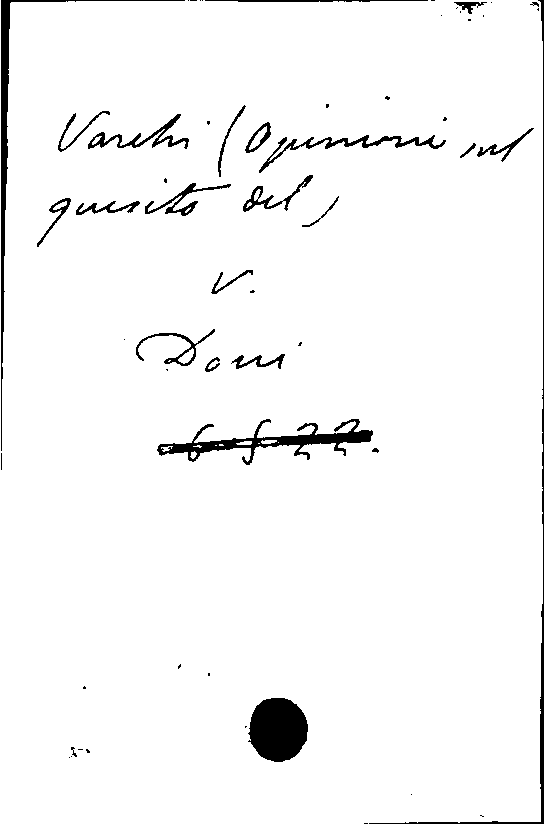 Varchi (Opinioni sul
quesito del)
V.
Doni
6522.